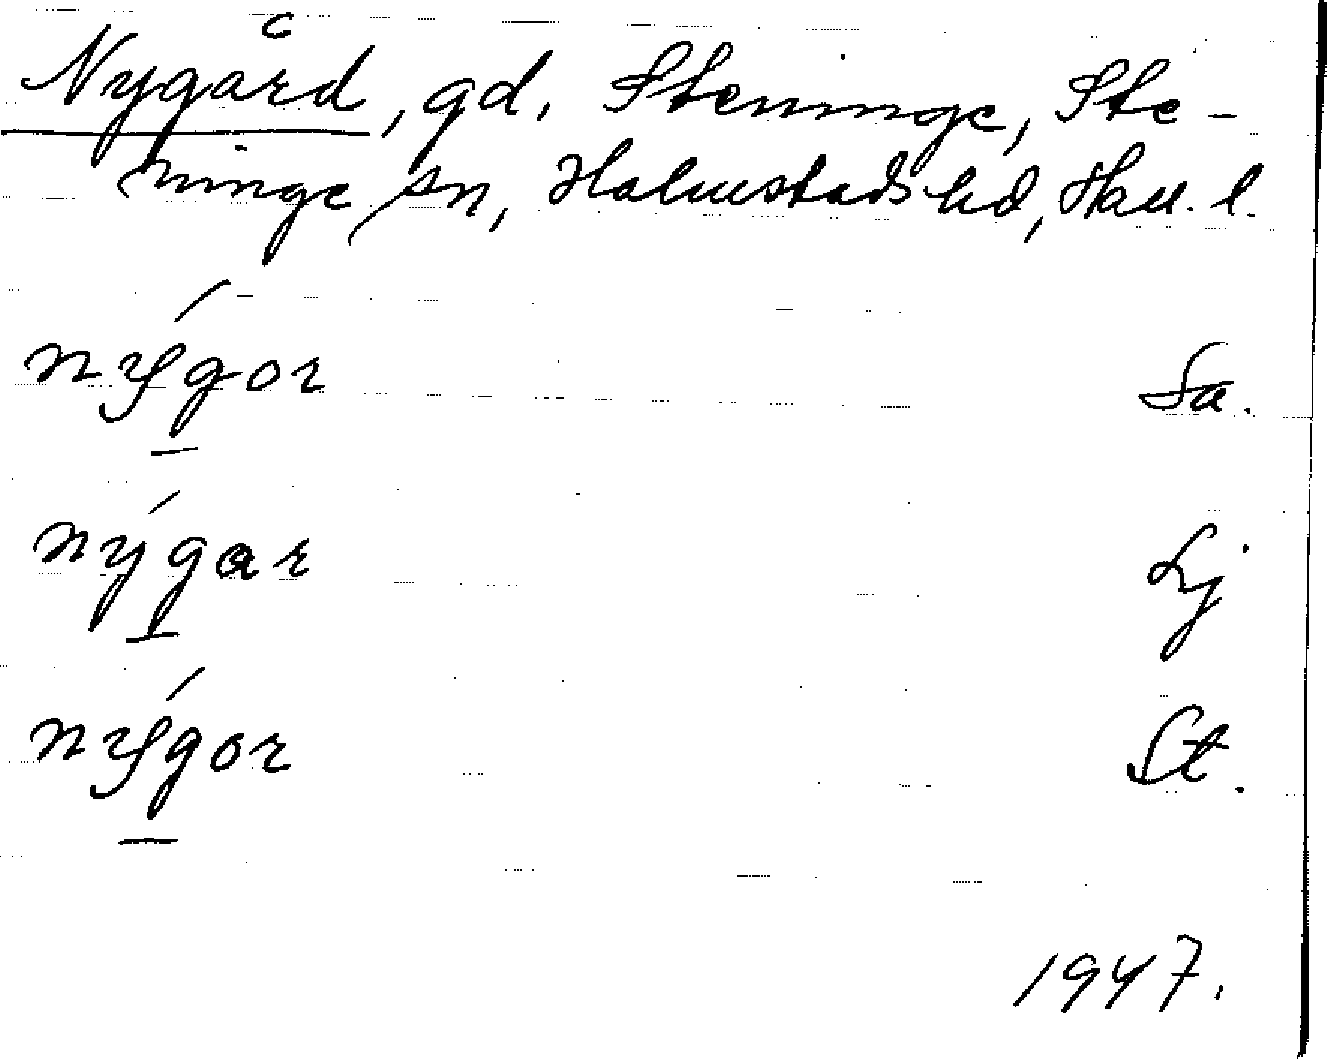 Nygård, gd. Steninge, Ste-
ninge sn, Halmstads hd, Hall. l.
nýgor Sa.
nýgar Lj
nýgor St.
1947.